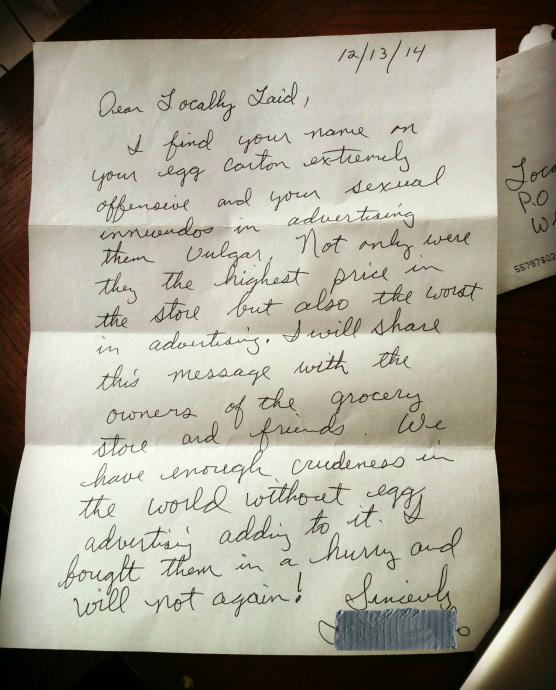 12/13/14
Dear Locally Laid,
I find your name on
your egg carton extremely
offensive and your sexual
innuendos in advertising
them vulgar. Not only were
they the highest price in
the store but also the worst
in advertising. I will share
this message with the
owners of the grocery
store and friends. We
have enough crudeness in
the world without egg
advertising adding to it. I
bought them in a hurry and
will not again!
Sincerely
Loca
P.O
W